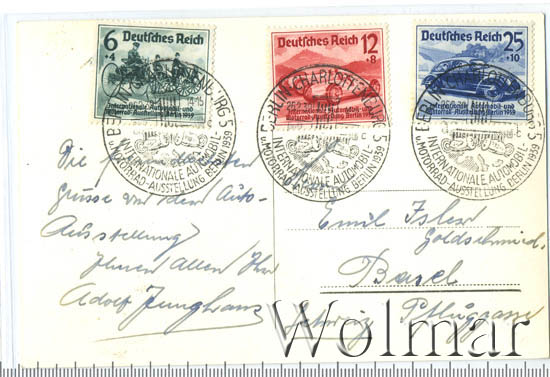 6
+4
Deutsches Reich
Internationale Automobil- und
Motorrad-Ausstellung Berlin 1939
Deutsches Reich
12
+8
Internationale Automobil- und
Motorrad-Ausstellung Berlin 1939
Deutsches Reich
25
+10
Internationale Automobil- und
Motorrad-Ausstellung Berlin 1939
BERLIN-CHARLOTTENBURG 5
INTERNATIONALE AUTOMOBIL-
u. MOTORRAD-AUSSTELLUNG BERLIN 1939
BERLIN-CHARLOTTENBURG 5
INTERNATIONALE AUTOMOBIL-
u. MOTORRAD-AUSSTELLUNG BERLIN 1939
BERLIN-CHARLOTTENBURG 5
INTERNATIONALE AUTOMOBIL-
u. MOTORRAD-AUSSTELLUNG BERLIN 1939
Die
Grüsse von dem Auto-
Ausstellung
Ihnen Allen Ihr
Adolf Junghans
Emil Isler
Goldschmied
Basel
Schweiz Pfluggasse
Wolmar